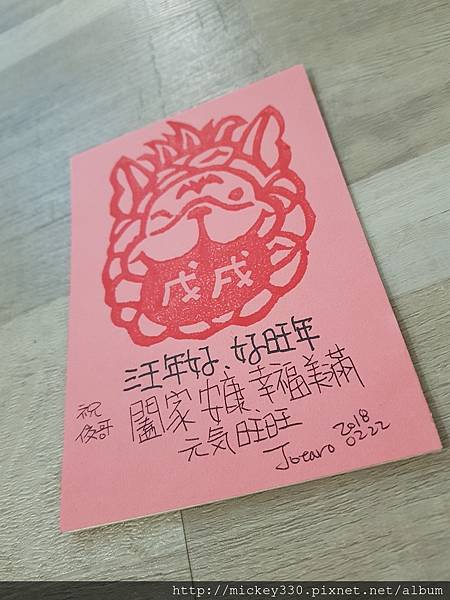 戊戌
汪年好、好旺年
祝俊哥
闔家安康、幸福美滿
元氣旺旺
Jotaro 2018 0222
http://mickey330.pixnet.net/album